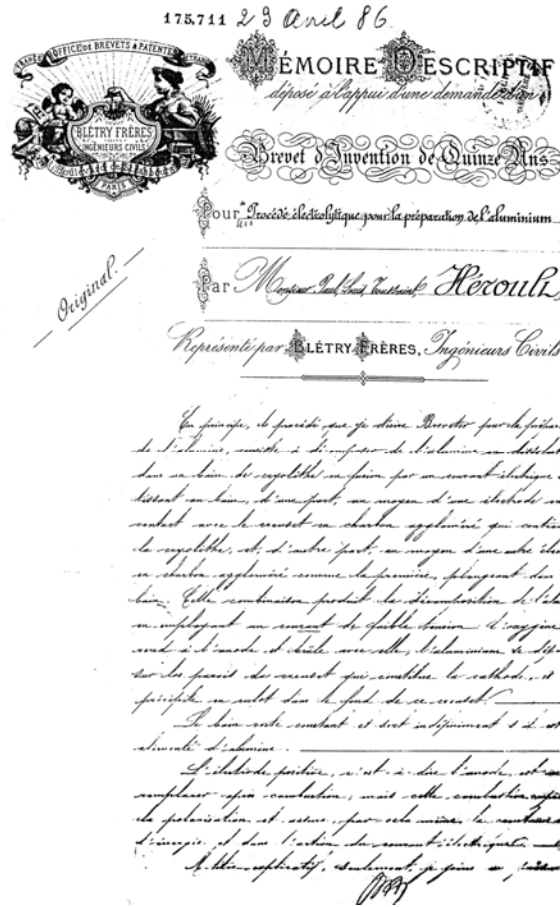 175,711 23 Avril 86.
FRANCE OFFICE DE BREVETS & PATENTES ETRANGER
MÉMOIRE DESCRIPTIF
déposé à l'appui d'une demande d'un
BLÉTRY FRÈRES
INGÉNIEURS CIVILS
PARIS
Brevet d'Invention de Quinze Ans
Pour Procédé électrolytique pour la préparation de l'aluminium
Original.
Par Monsieur Paul, Louis, Toussaint, Héroult
Représenté par BLÉTRY FRÈRES, Ingénieurs Civils
En principe, le procédé que je désire Breveter pour la prépar
de l'alumine, consiste à décomposer de l'alumine en dissolut
dans un bain de cryolithe en fusion par un courant électrique
tissant au bain, d'une part, au moyen d'une électrode en
contact avec le creuset en charbon aggloméré qui contien
la cryolithe, et, d'autre part, au moyen d'une autre élec
en charbon aggloméré comme la première, plongeant dans
bain. Cette combinaison produit la décomposition de l'al
en employant un courant de faible tension. L'oxygène
rend à l'anode et brûle avec elle, l'aluminium se dépo
sur les parois du creuset qui constitue la cathode, et
précipite en culot dans le fond de ce creuset.
Le bain reste constant et sert indéfiniment s'il est
alimenté d'alumine.
L'électrode positive, c'est-à-dire l'anode, est
remplacer après combustion, mais cette combustion
la polarisation et assure, par cela même, la constance
d'énergie et dans l'action du courant électrique.
A titre explicatif, seulement, je joins